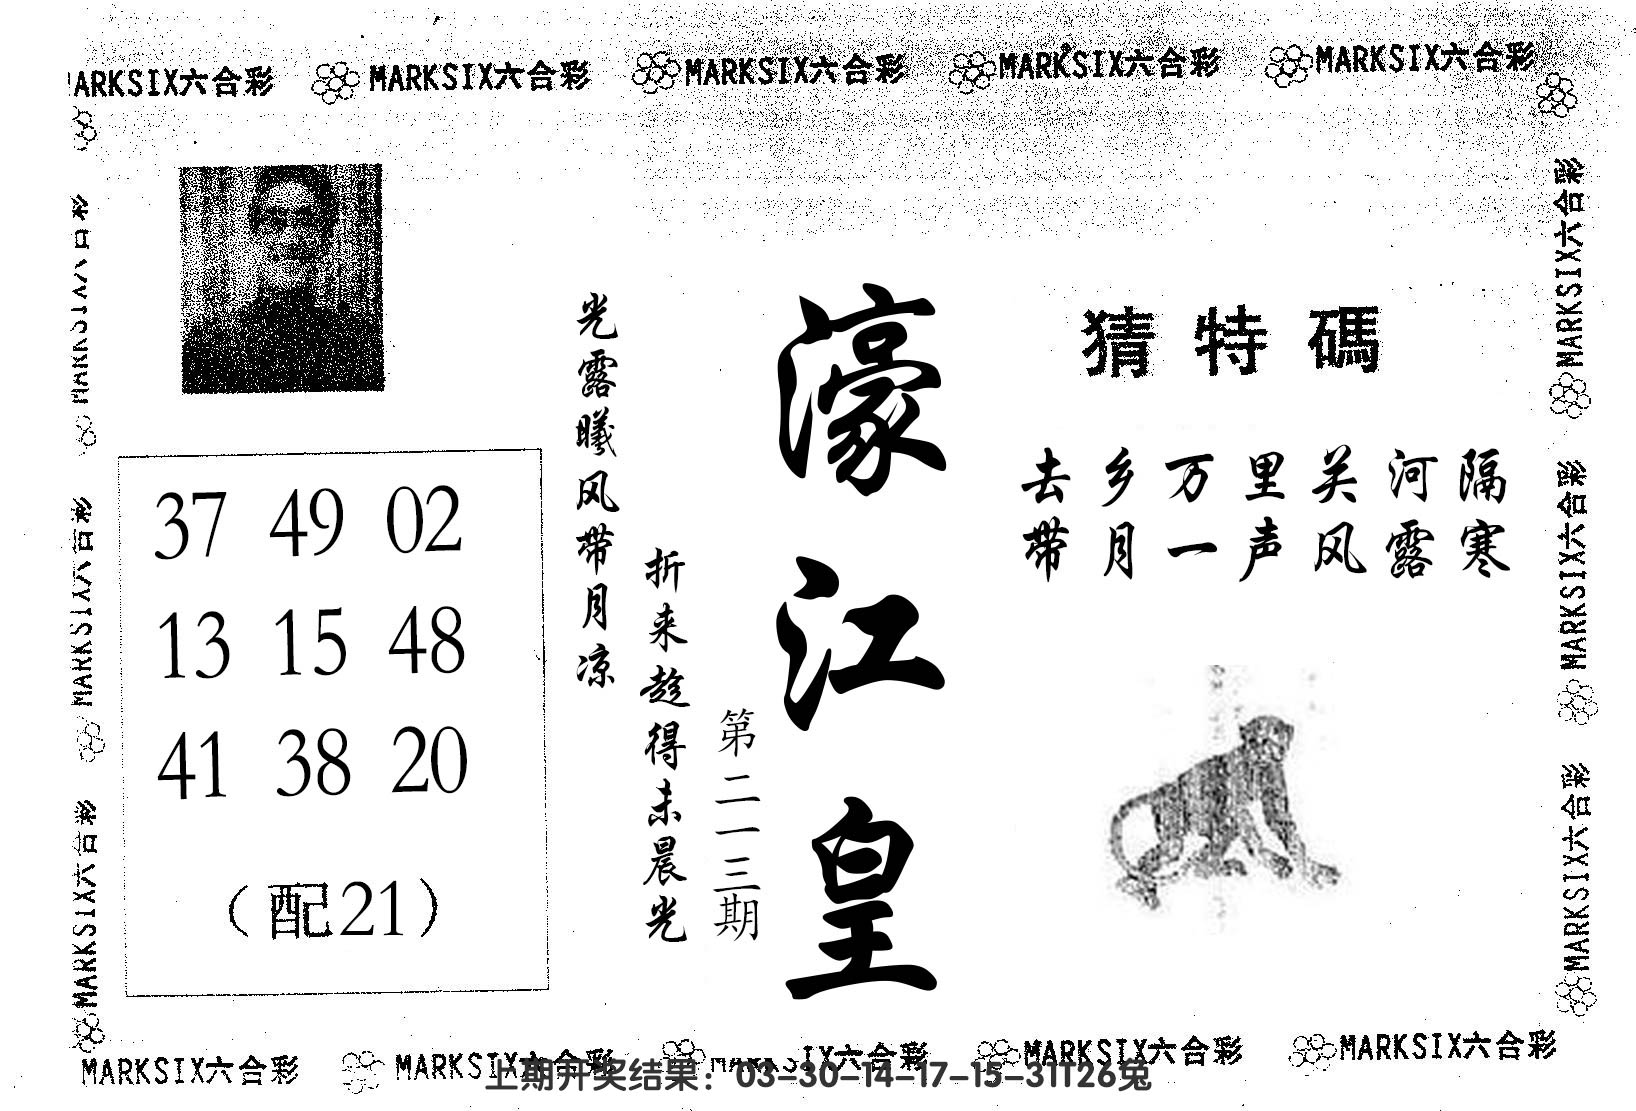 MARKSIX六合彩 MARKSIX六合彩 MARKSIX六合彩 MARKSIX六合彩
猜特碼
去乡万里关河隔
带月一声风露寒
濠江皇
第二一三期
光露曦风带月凉
折来趁得未晨光
37 49 02
13 15 48
41 38 20
（配21）
MARKSIX六合彩
MARKSIX六合彩
MARKSIX六合彩
MARKSIX六合彩
MARKSIX六合彩
MARKSIX六合彩 MARKSIX六合彩 MARKSIX六合彩 MARKSIX六合彩
上期开奖结果：03-30-14-17-15-31T26兔